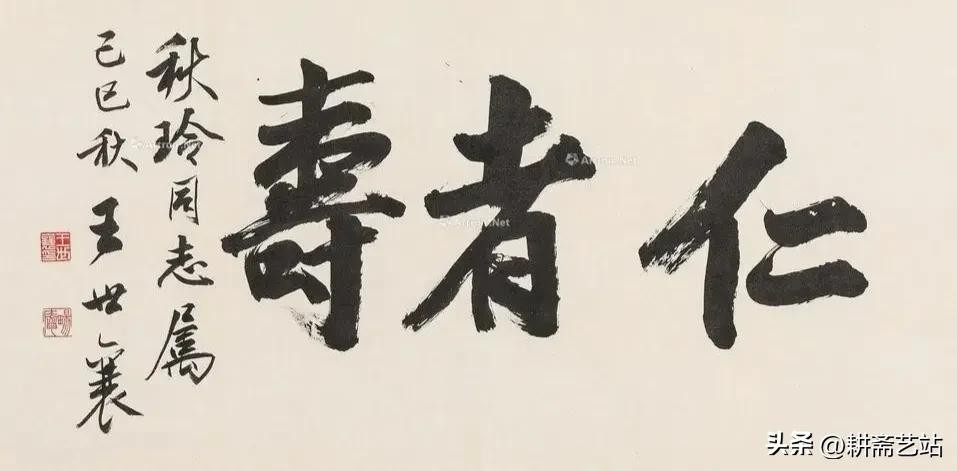 仁者壽
秋玲同志属
己巳秋 王世襄
Artron.Net
头条 @耕斋艺站